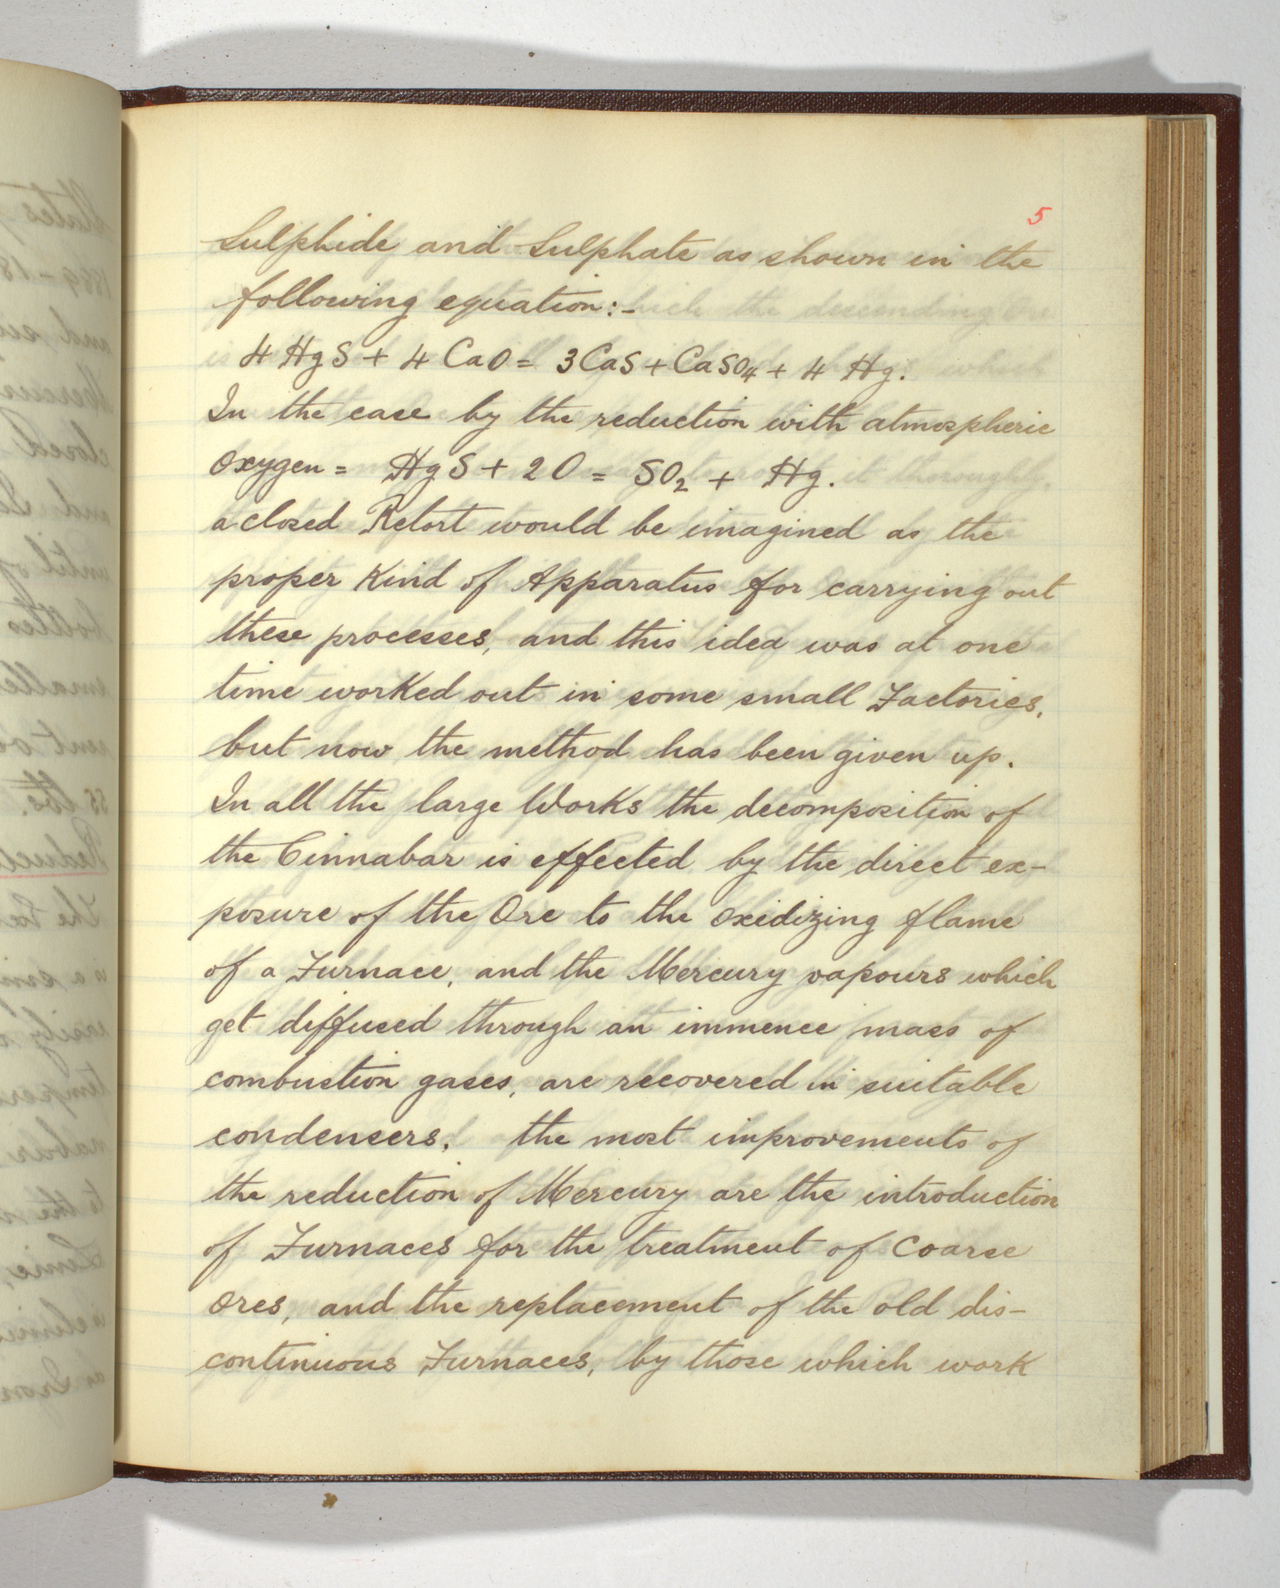 5
Sulphide and Sulphate as shown in the
following equation:-
4 HgS + 4 CaO = 3CaS + CaSO4 + 4 Hg.
In the case by the reduction with atmospheric
Oxygen = HgS + 2O = SO2 + Hg.
a closed Retort would be imagined as the
proper Kind of Apparatus for carrying out
these processes, and this idea was at one
time worked out in some small Factories,
but now the method has been given up.
In all the large Works the decomposition of
the Cinnabar is effected by the direct ex-
posure of the Ore to the oxidizing flame
of a Furnace, and the Mercury vapours which
get diffused through an immence mass of
combustion gases, are recovered in suitable
condensers. the most improvements of
the reduction of Mercury are the introduction
of Furnaces for the treatment of Coarse
Ores, and the replacement of the old dis-
continuous Furnaces, by those which work